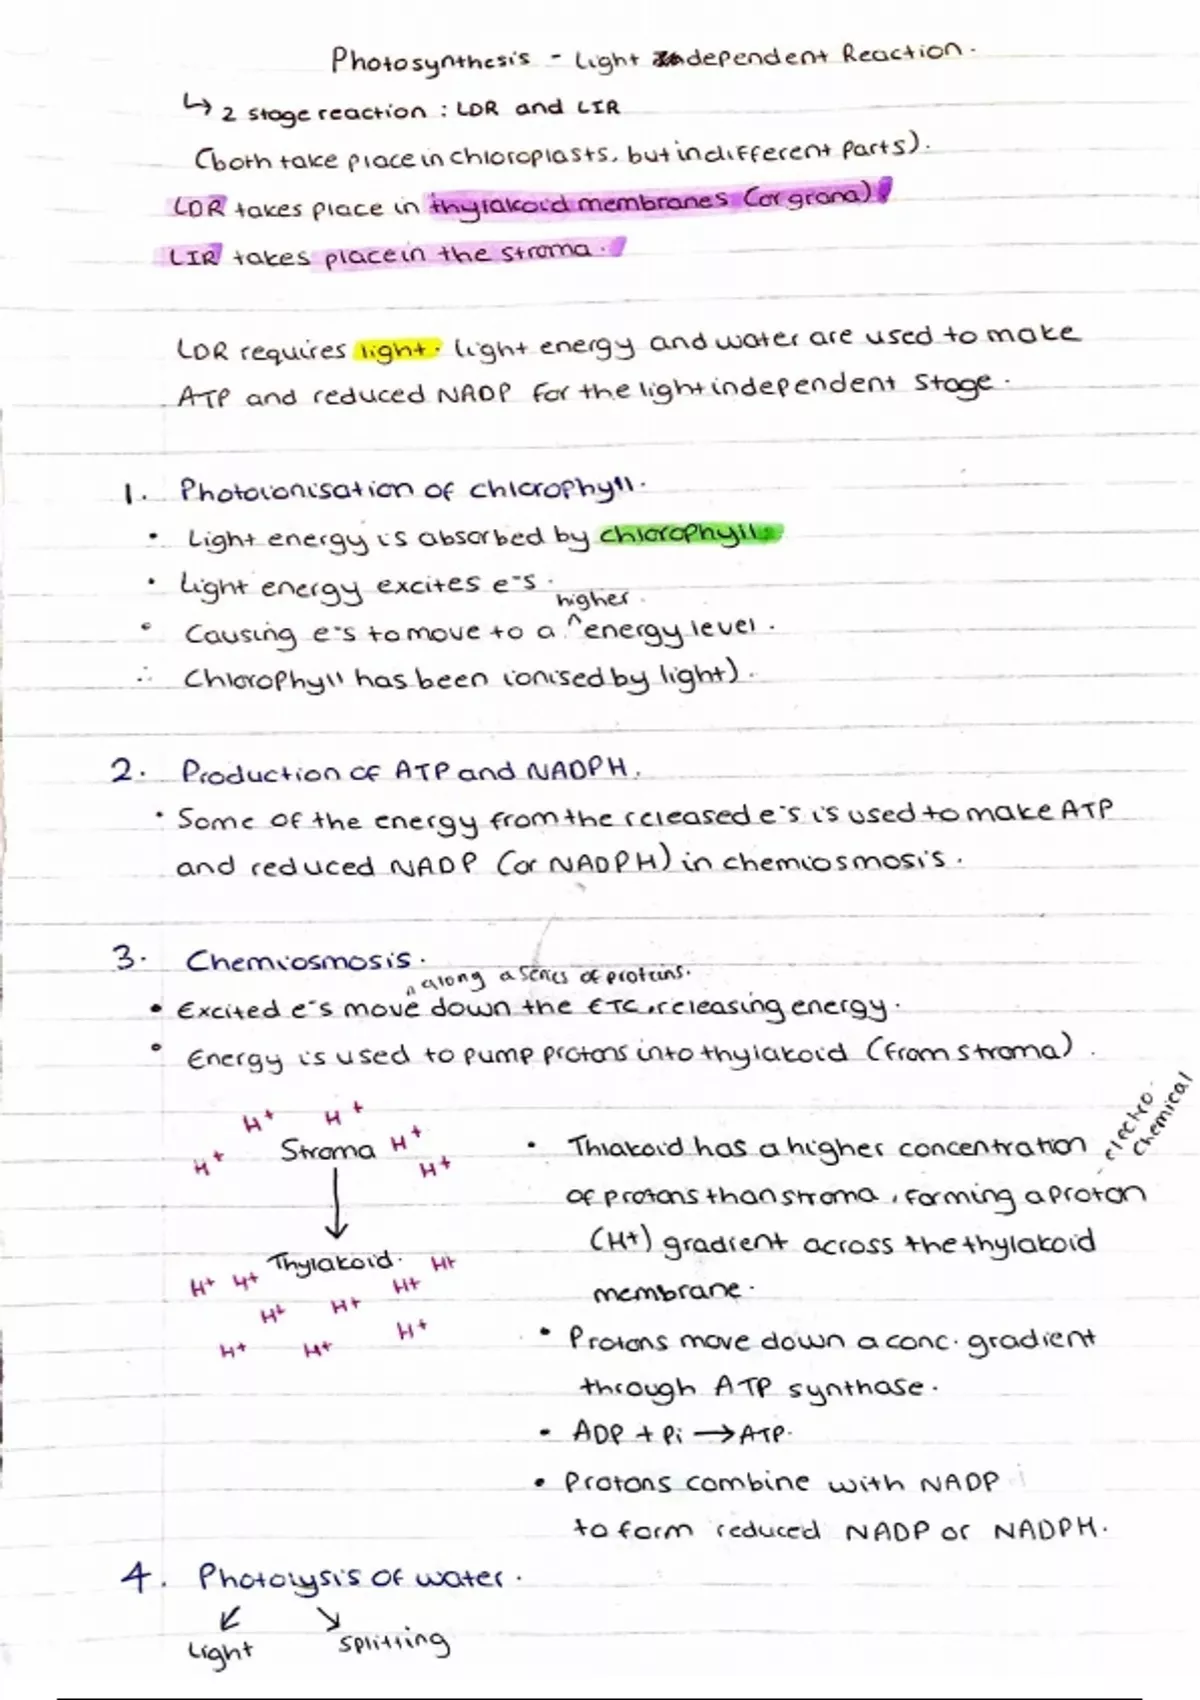 Photosynthesis - Light dependent Reaction.
↳ 2 stage reaction : LDR and LIR
(both take place in chloroplasts, but in different parts).
LDR takes place in thylakoid membranes (or grana)
LIR takes place in the stroma.
LDR requires light. Light energy and water are used to make
ATP and reduced NADP for the light independent stage.
1. Photoionisation of chlorophyll.
• Light energy is absorbed by chlorophyll
• Light energy excites e⁻s.
higher.
• Causing e⁻s to move to a ^ energy level.
∴ Chlorophyll has been ionised by light).
2. Production of ATP and NADPH.
• Some of the energy from the released e⁻s is used to make ATP
and reduced NADP (or NADPH) in chemiosmosis.
3. Chemiosmosis.
^ along a series of proteins.
• Excited e⁻s move down the ETC, releasing energy.
• Energy is used to pump protons into thylakoid (from stroma).
H⁺ H⁺
Stroma H⁺
H⁺ H⁺
Thylakoid. H⁺
H⁺ H⁺ H⁺
H⁺ H⁺
H⁺ H⁺ H⁺
electro
chemical
• Thlakoid has a higher concentration
of protons than stroma, forming a proton
(H⁺) gradient across the thylakoid
membrane.
• Protons move down a conc. gradient
through ATP synthase.
• ADP + Pi → ATP.
• Protons combine with NADP
to form reduced NADP or NADPH.
4. Photolysis of water.
↙ ↘
Light splitting